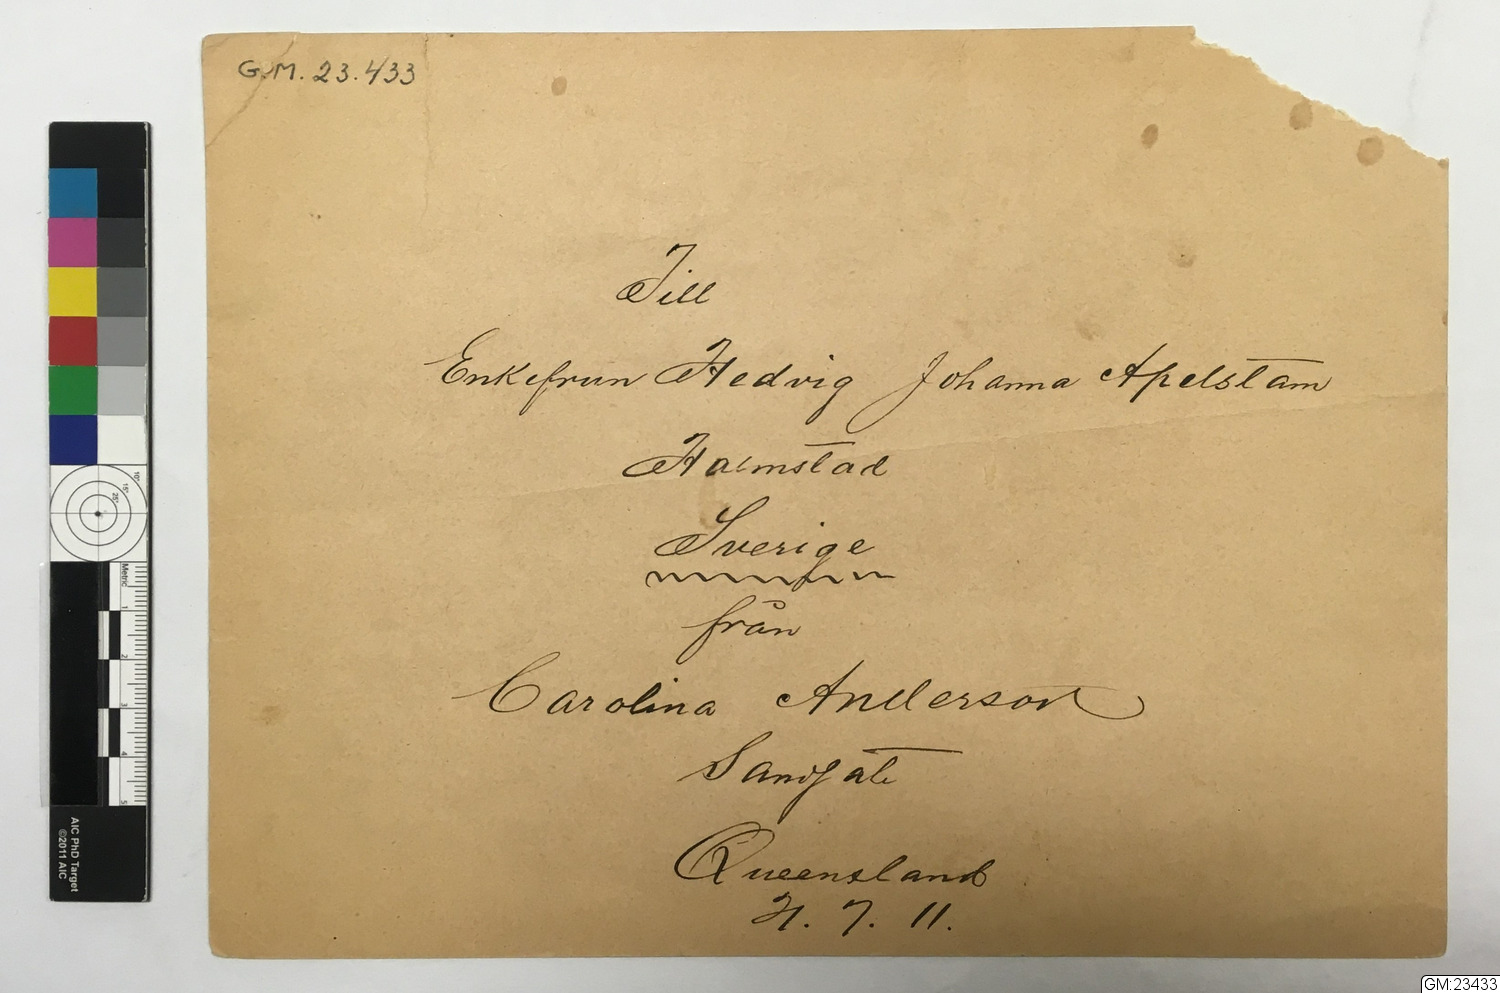 G.M. 23.433
Till
Enkefrun Hedvig Johanna Apelstam
Halmstad
Sverige
från
Carolina Anderson
Sandgate
Queensland
7. 11.
10°
15°
25°
Metric
1
2
3
4
5
AIC PhD Target
©2011 AIC
GM:23433